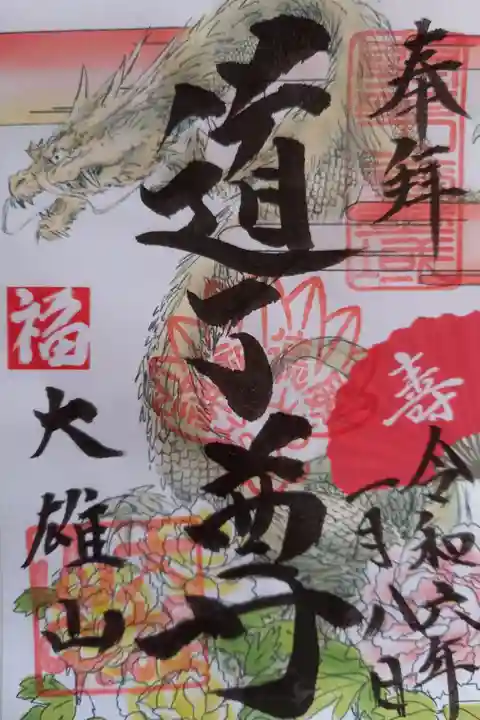 奉拜
壽
令和六年
一月八日
道了尊
福
大雄山